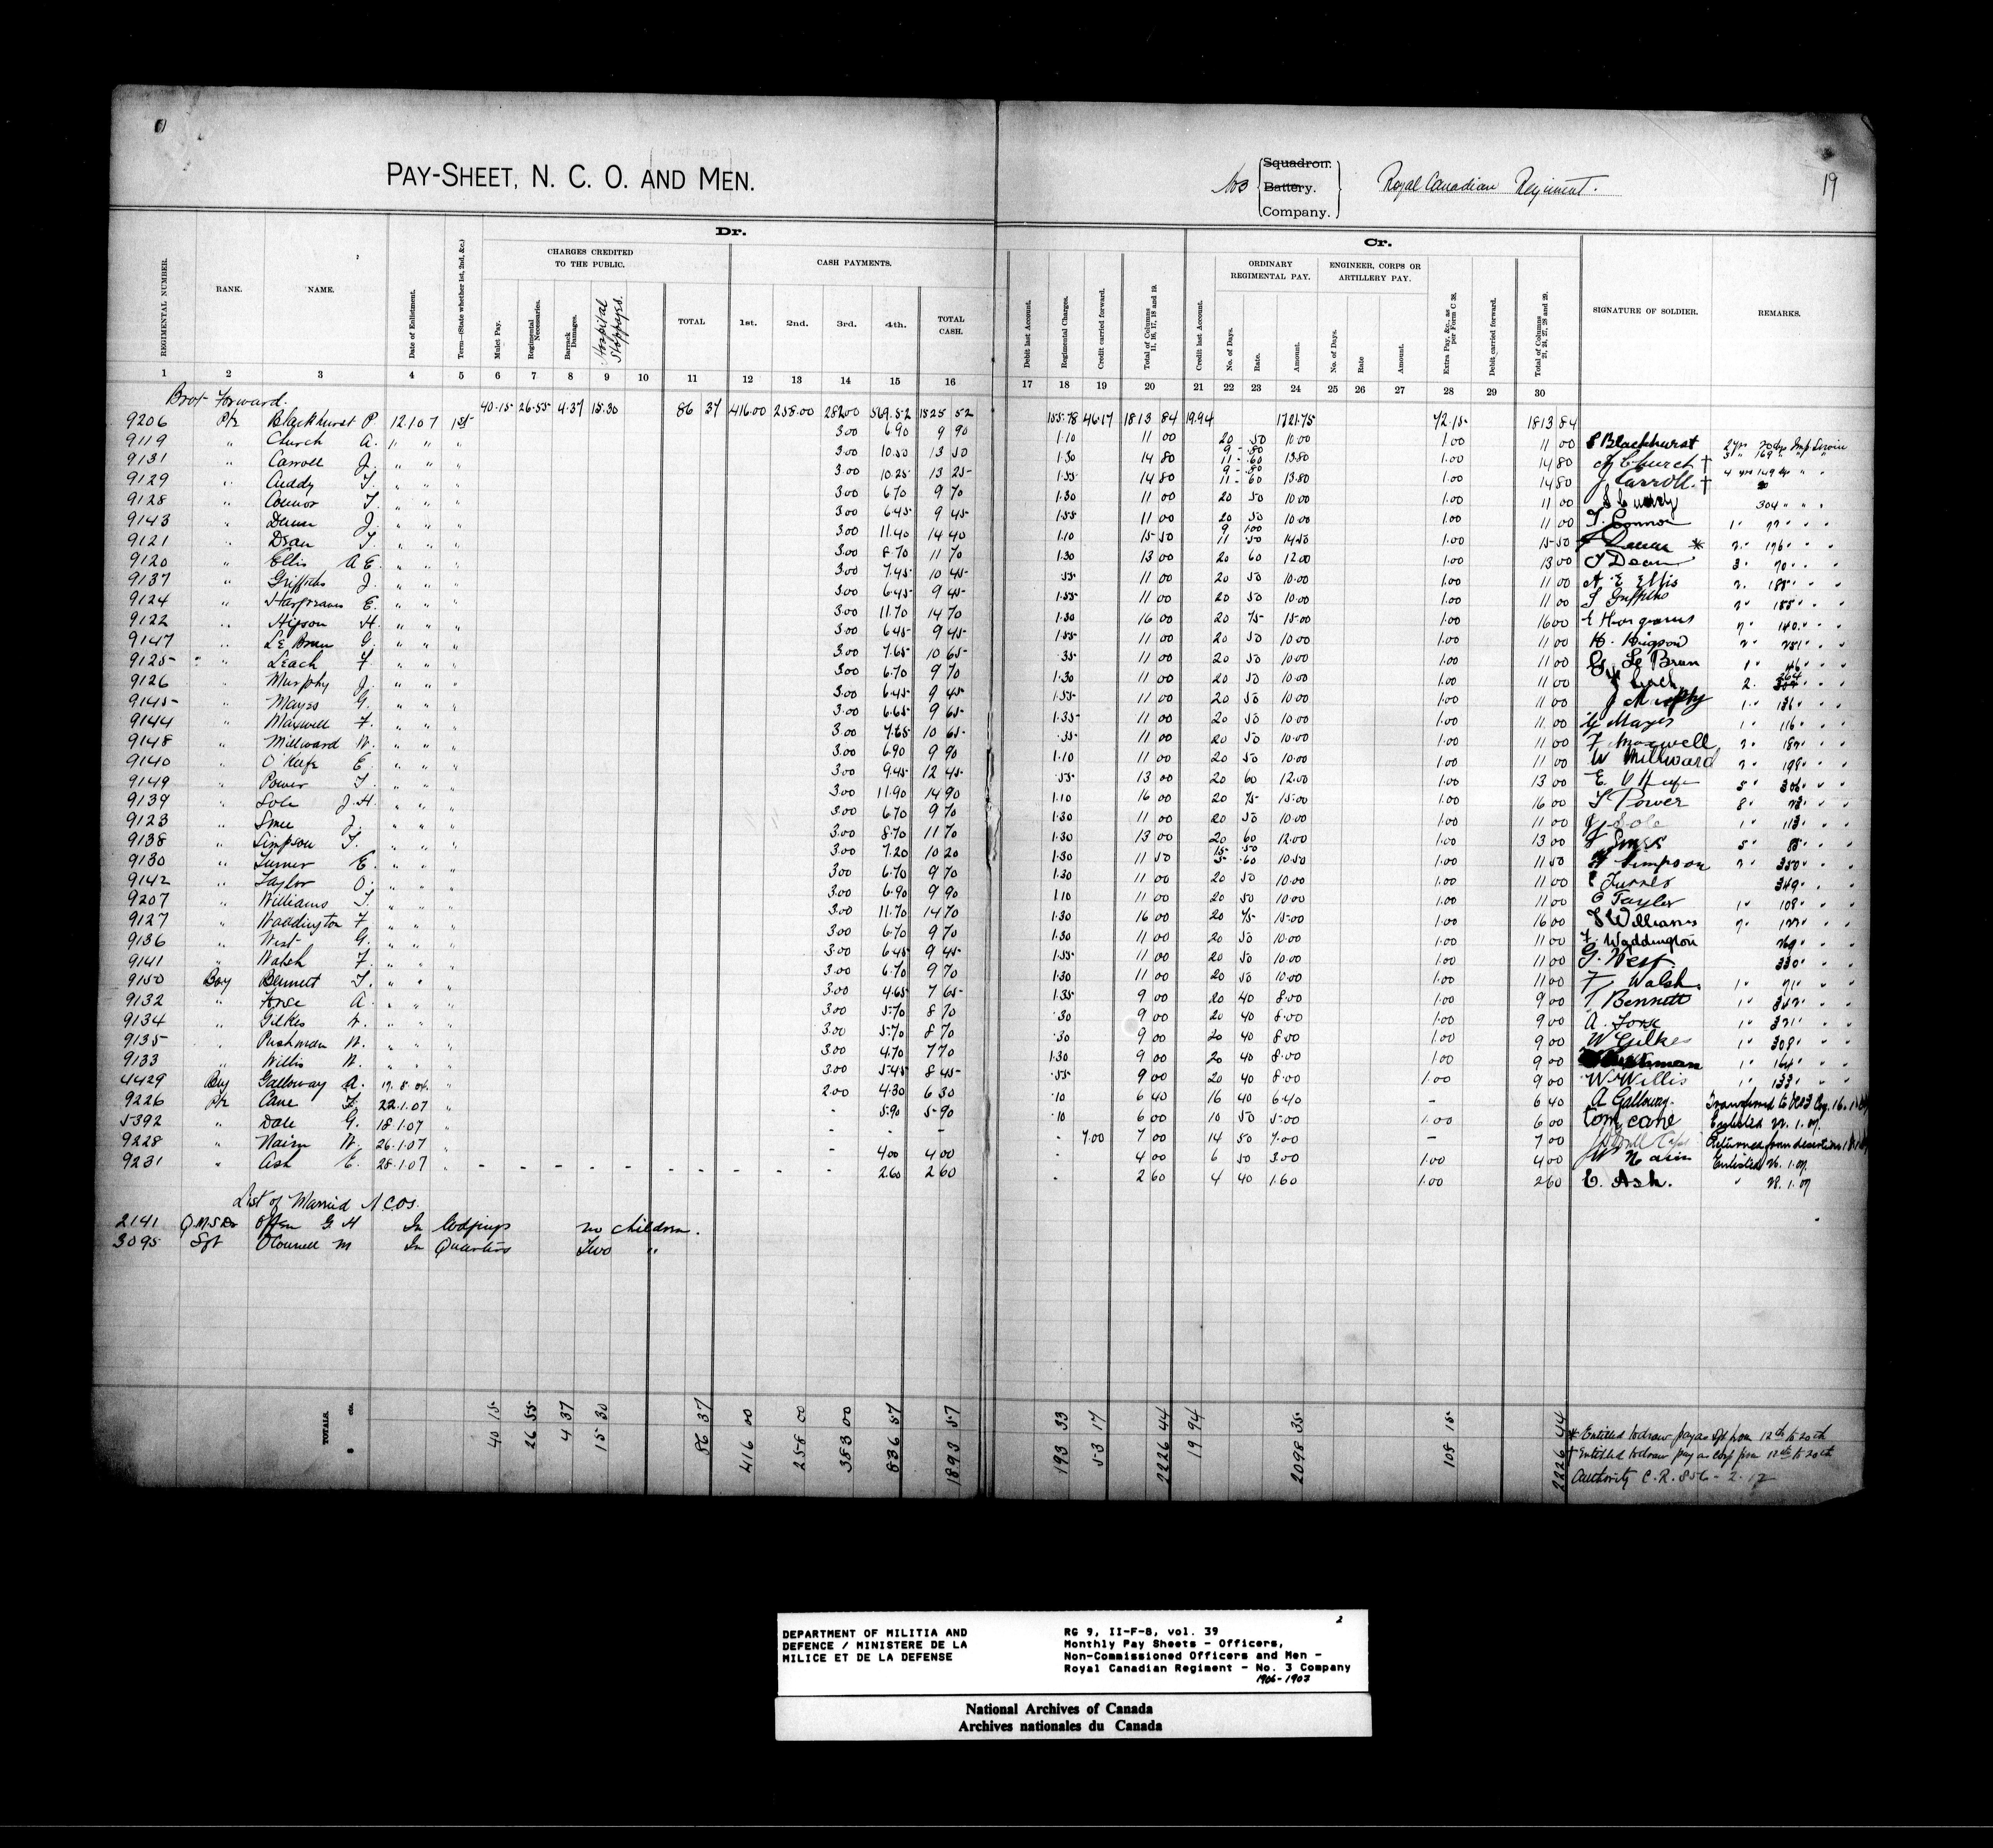 PAY-SHEET, N. C. O. AND MEN.
No 3 Squadron. Battery. Company. Royal Canadian Regiment. 19
Dr.
CHARGES CREDITED TO THE PUBLIC.
CASH PAYMENTS.
REGIMENTAL NUMBER. RANK. NAME. Date of Enlistment. Term—(State whether 1st, 2nd, &c.) Mulct Pay. Regimental Necessaries. Barrack Damages. Hospital Stoppages. TOTAL 1st. 2nd. 3rd. 4th. TOTAL CASH.
Cr.
ORDINARY REGIMENTAL PAY.
ENGINEER, CORPS OR ARTILLERY PAY.
Debit last Account. Regimental Charges. Credit carried forward. Total of Columns 11, 16, 17, 18 and 19. Credit last Account. No. of Days. Rate. Amount. No. of Days. Rate Amount. Extra Pay, &c., as per Form C 38. Debit carried forward. Total of Columns 21, 24, 27, 28 and 29. SIGNATURE OF SOLDIER. REMARKS.
1 2 3 4 5 6 7 8 9 10 11 12 13 14 15 16 17 18 19 20 21 22 23 24 25 26 27 28 29 30
Brot Forward. 40.15 26.55 4.37 15.30 86 37 416.00 258.00 282.00 569.52 1525 52 155.78 46.17 1813 84 19.94 1721.75 72.15 1813 84
9206 Pte Blackhurst P 12 1 07 1st 3.00 6.90 9 90 1.10 11 00 20 50 10.00 1.00 11 00 Blackhurst
9119 " Church A. " " " " 3.00 10.50 13 50 1.30 14 80 9 .80 11 .60 13.80 1.00 14 80 Church †
9131 " Carroll J. " " " " 3.00 10.25 13 25 1.55 14 80 9 .80 11 .60 13.80 1.00 14 80 J Carroll †
9129 " Cuddy T. " " " " 3.00 6.70 9 70 1.30 11 00 20 50 10.00 1.00 11 00 304 " " "
9128 " Connor T. " " " " 3.00 6.45 9 45 1.55 11 00 20 50 10.00 1.00 11 00 T. Connor
9143 " J. " " " " 3.00 11.40 14 40 1.10 15 50 9 1.00 11 .50 14.50 1.00 15 50 *
9121 " Dean T. " " " " 3.00 8.70 11 70 1.30 13 00 20 60 12.00 1.00 13 00 T Dean
9120 " Ellis A E. " " " " 3.00 7.45 10 45 .55 11 00 20 50 10.00 1.00 11 00 A. E Ellis
9137 " Griffiths J. " " " " 3.00 6.45 9 45 1.55 11 00 20 50 10.00 1.00 11 00 Griffiths
9124 " Hargraves E. " " " " 3.00 11.70 14 70 1.30 16 00 20 75 15.00 1.00 16 00 E Hargraves
9122 " Higson H. " " " " 3.00 6.45 9 45 1.55 11 00 20 50 10.00 1.00 11 00 H. Higson
9147 " Le Brun G. " " " " 3.00 7.65 10 65 .35 11 00 20 50 10.00 1.00 11 00 G. Le Brun
9125 " Leach F. " " " " 3.00 6.70 9 70 1.30 11 00 20 50 10.00 1.00 11 00 Leach
9126 " Murphy J. " " " " 3.00 6.45 9 45 1.55 11 00 20 50 10.00 1.00 11 00 J Murphy
9145 " Mayes G. " " " " 3.00 6.65 9 65 1.35 11 00 20 50 10.00 1.00 11 00 G Mayes
9144 " Maxwell F. " " " " 3.00 7.65 10 65 .35 11 00 20 50 10.00 1.00 11 00 F. Maxwell
9148 " Millward W. " " " " 3.00 6.90 9 90 1.10 11 00 20 50 10.00 1.00 11 00 W Millward
9140 " O'Keefe E. " " " " 3.00 9.45 12 45 .55 13 00 20 60 12.00 1.00 13 00 E O'Keefe
9149 " Power T. " " " " 3.00 11.90 14 90 1.10 16 00 20 75 15.00 1.00 16 00 T Power
9139 " Sole J.H. " " " " 3.00 6.70 9 70 1.30 11 00 20 50 10.00 1.00 11 00 Sole
9123 " Smee J. " " " " 3.00 8.70 11 70 1.30 13 00 20 60 12.00 1.00 13 00 Smee
9138 " Simpson T. " " " " 3.00 7.20 10 20 1.30 11 50 15 .50 5 .60 10.50 1.00 11 50 Simpson
9130 " Turner E. " " " " 3.00 6.70 9 70 1.30 11 00 20 50 10.00 1.00 11 00 E Turner
9142 " Taylor O. " " " " 3.00 6.90 9 90 1.10 11 00 20 50 10.00 1.00 11 00 O Taylor
9207 " Williams T. " " " " 3.00 11.70 14 70 1.30 16 00 20 75 15.00 1.00 16 00 T Williams
9127 " Waddington F. " " " " 3.00 6.70 9 70 1.30 11 00 20 50 10.00 1.00 11 00 F. Waddington
9136 " West G. " " " " 3.00 6.45 9 45 1.55 11 00 20 50 10.00 1.00 11 00 G. West.
9141 " Walsh F. " " " " 3.00 6.70 9 70 1.30 11 00 20 50 10.00 1.00 11 00 F. Walsh.
9150 Boy Bennett T. " " " " 3.00 4.65 7 65 1.35 9 00 20 40 8.00 1.00 9 00 T Bennett
9132 " A. " " " " 3.00 5.70 8 70 .30 9 00 20 40 8.00 1.00 9 00 A.
9134 " Gilkes W. " " " " 3.00 5.70 8 70 .30 9 00 20 40 8.00 1.00 9 00 W Gilkes
9135 " Pushman W. " " " " 3.00 4.70 7 70 1.30 9 00 20 40 8.00 1.00 9 00
9133 " Willis W. " " " " 3.00 5.45 8 45 .55 9 00 20 40 8.00 1.00 9 00 W Willis
4429 Boy Galloway A. 17.8.04. " 2.00 4.30 6 30 .10 6 40 16 40 6.40 - 6 40 A Galloway. Transferred to No 3 Coy. 16.1.07
9226 Pte Cane T. 22.1.07 " - 5.90 5 90 .10 6 00 10 50 5.00 1.00 6 00 Tom cane Enlisted 22.1.07.
5392 " Dale G. 18.1.07 " - - - - 7.00 7 00 14 50 7.00 - 7 00 Returned from desertion 18.1.07
9228 " Nairn W. 26.1.07 " - 4.00 4 00 - 4 00 6 50 3.00 1.00 4 00 W Nairn Enlisted 26.1.07.
9231 " Ash E. 28.1.07 " - - - - - - - - - 2.60 2 60 - 2 60 4 40 1.60 1.00 2 60 E. Ash. " 28.1.07
List of Married N C Os.
2141 Q.M.S. Offen G H In Lodgings no children.
3095 Sgt O'Connell M In Quarters Two "
TOTALS. $ cts. 40 15 26 55 4 37 15 30 86 37 416 00 258 00 383 00 836 57 1893 57 193 33 53 17 2226 44 19 94 2098 35 108 15 2226 44
* Entitled to draw pay as Sgt from 12th to 20th
† Entitled to draw pay as Corp from 12th to 20th
Authority C.R. 856-2.17
DEPARTMENT OF MILITIA AND
DEFENCE / MINISTERE DE LA
MILICE ET DE LA DEFENSE
2
RG 9, II-F-8, vol. 39
Monthly Pay Sheets - Officers,
Non-Commissioned Officers and Men -
Royal Canadian Regiment - No. 3 Company
1906-1907
National Archives of Canada
Archives nationales du Canada